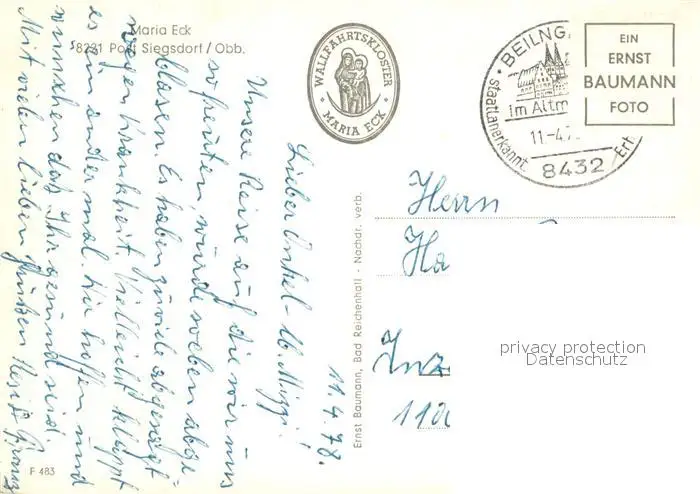 Maria Eck
8221 Post Siegsdorf / Obb.
WALLFAHRTSKLOSTER
MARIA ECK
BEILNG
im Altm
staatl. anerkannt.
Erh
11.-4.7
8432
EIN
ERNST
BAUMANN
FOTO
11.4.78.
Lieber Onkel - lb. Mizzi!
Unsere Reise auf die wir uns
so freuten, wurde soeben abge-
blasen. Es haben zuviele abgesagt
wegen Krankheit. Vielleicht klappt
es ein andermal. Wir hoffen und
wünschen daß Ihr gesund seid.
Mit vielen lieben Grüßen
Ernst Baumann, Bad Reichenhall - Nachdr. verb.
Herrn
Ha
Inz
110
F 483
privacy protection
Datenschutz